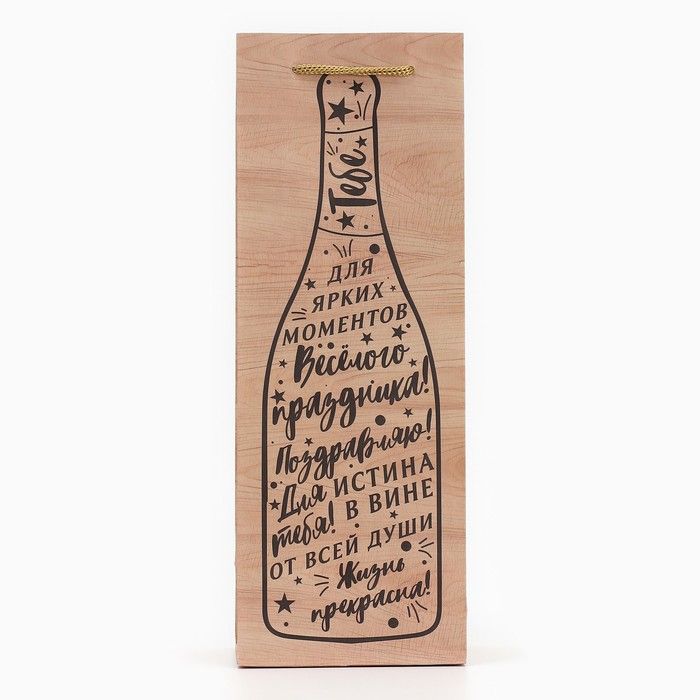 Тебе
ДЛЯ
ЯРКИХ
МОМЕНТОВ
Весёлого
праздника!
Поздравляю!
Для ИСТИНА
тебя! В ВИНЕ
ОТ ВСЕЙ ДУШИ
Жизнь
прекрасна!